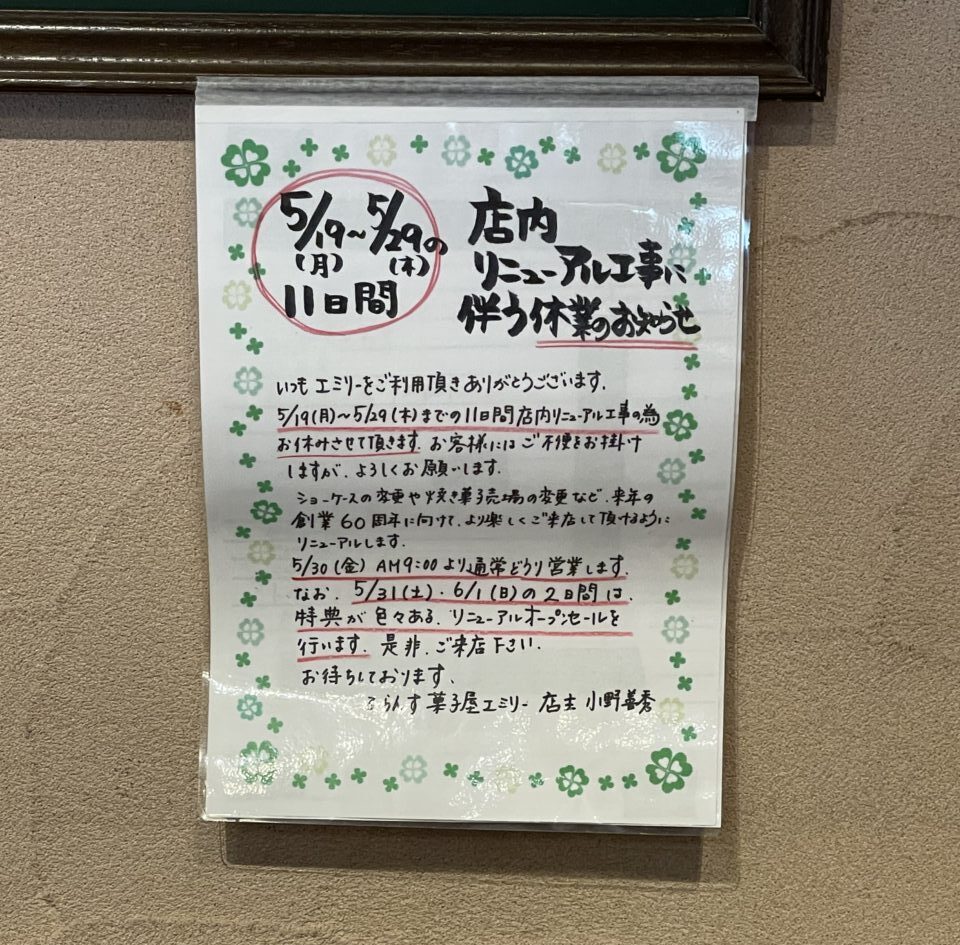 5/19〜5/29の
(月) (木)
11日間
店内
リニューアル工事に
伴う休業のお知らせ
いつもエミリーをご利用頂きありがとうございます。
5/19(月)〜5/29(木)までの11日間店内リニューアル工事の為
お休みさせて頂きます。お客様にはご不便をお掛け
しますが、よろしくお願いします。
ショーケースの変更や焼き菓子売場の変更など、来年の
創業60周年に向けて、より楽しくご来店して頂けるように
リニューアルします。
5/30(金)AM9:00より通常どうり営業します。
なお、5/31(土)・6/1(日)の2日間は、
特典が色々ある、リニューアルオープンセールを
行います。是非、ご来店下さい。
お待ちしております、
ふらんす菓子屋エミリー 店主 小野善秀